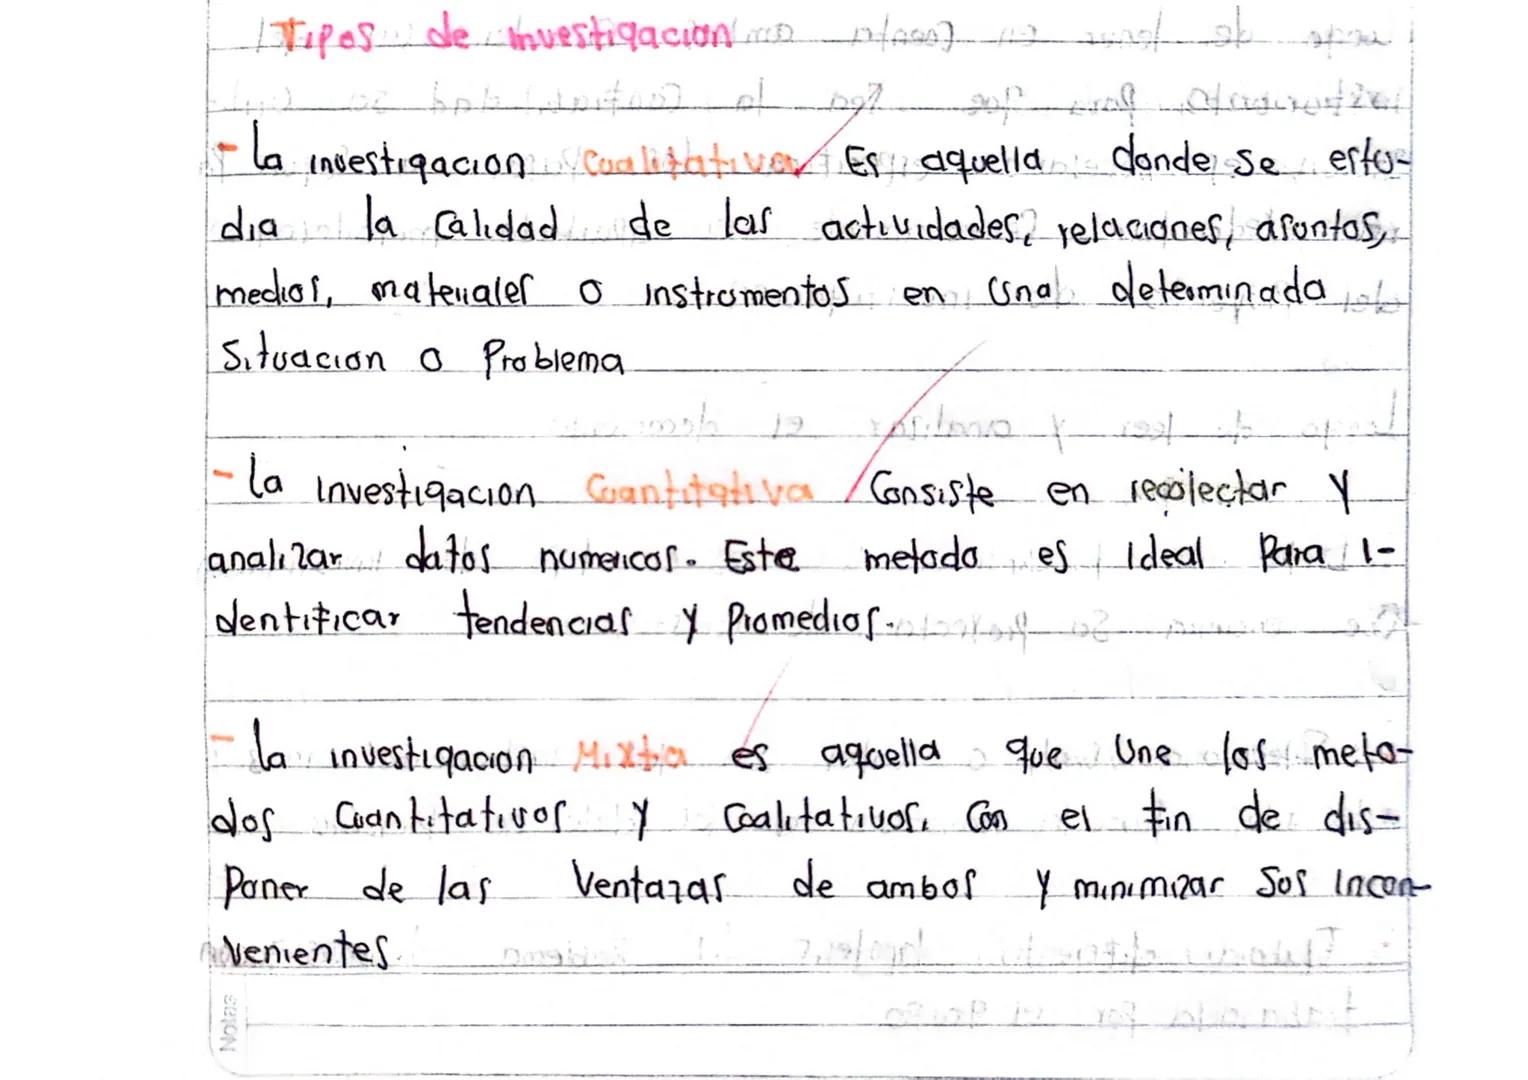 Tipos de investigacion
- la investigacion Cualitativa Es aquella donde se estu-
dia la calidad de las actividades, relaciones, asuntos,
medios, materiales o instrumentos en una determinada
Situacion o Problema
- la investigacion Cuantitativa Consiste en recolectar y
analizar datos numericos. Este metodo es ideal Para i-
dentificar tendencias y Promedios.
- la investigacion Mixta es aquella que Une los meto-
dos Cuantitativos y Cualitativos, Con el fin de dis-
Poner de las Ventajas de ambos y minimizar Sus incon-
venientes
Notas